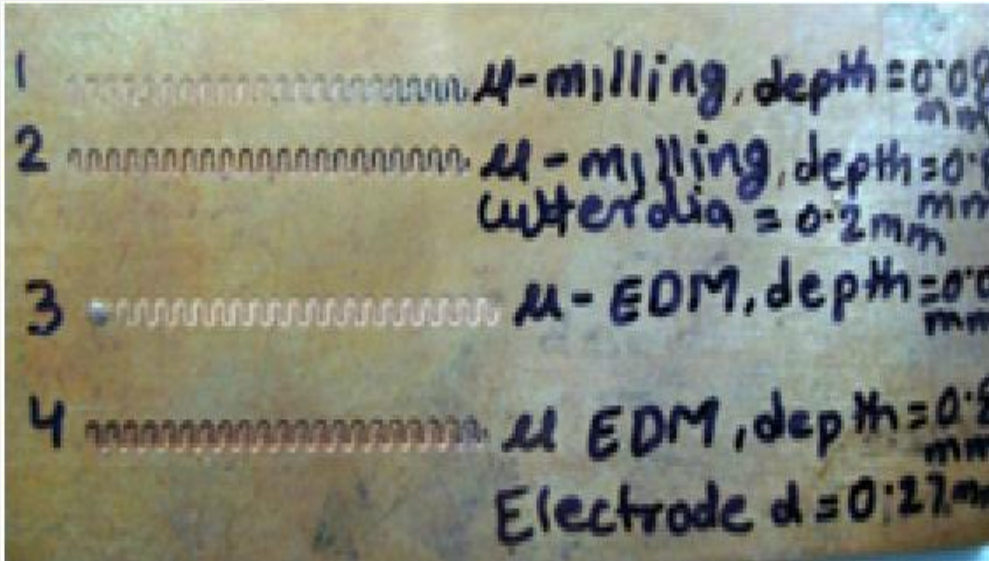 1 μ-milling, depth=0.0
mm
2 μ-milling, depth=0.
mm
Cutter dia = 0.2mm
3 μ-EDM, depth=0.0
mm
4 μ EDM, depth=0.8
mm
Electrode d=0.27mm